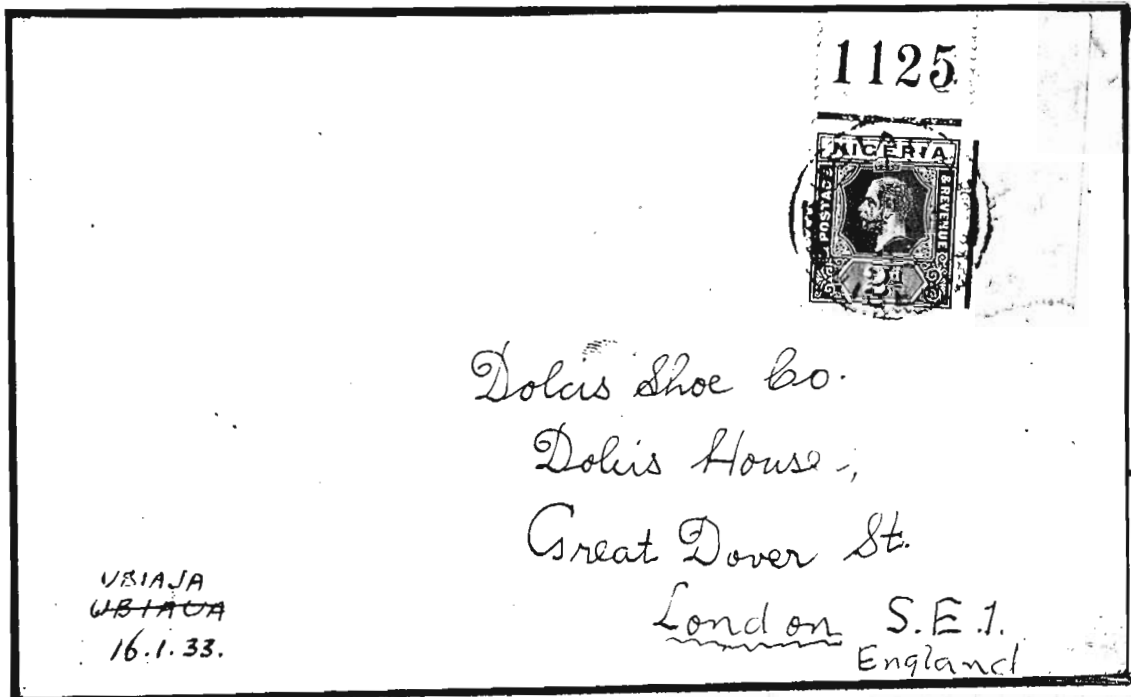 1125
NIGERIA
POSTAGE & REVENUE
3d
Dolcis Shoe Co.
Dolcis House,
Great Dover St.
London S.E.1.
England
UBIAJA
UBIAUA
16.1.33.